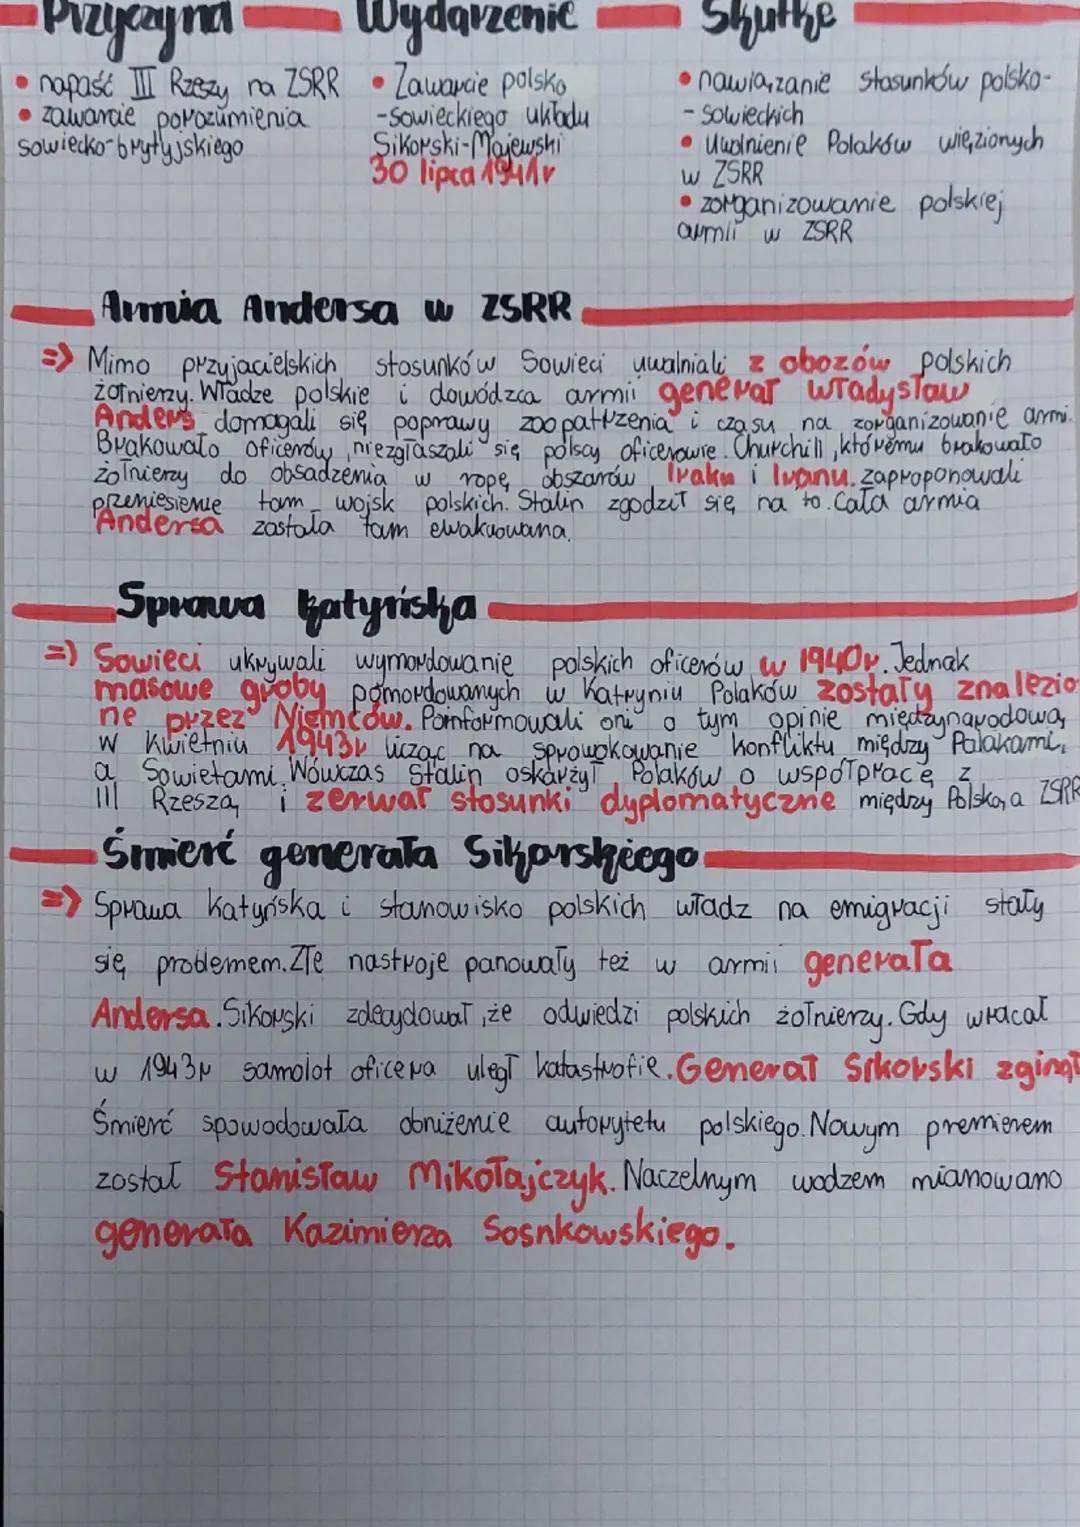 Przyczyna Wydarzenie Skutki
• napaść III Rzeszy na ZSRR
• zawarcie porozumienia
sowiecko-brytyjskiego
• Zawarcie polsko
-sowieckiego układu
Sikorski-Majewski
30 lipca 1941r
• nawiązanie stosunków polsko-
- sowieckich
• Uwolnienie Polaków więzionych
w ZSRR
• zorganizowanie polskiej
armii w ZSRR
Armia Andersa w ZSRR
=> Mimo przyjacielskich stosunków Sowieci uwalniali z obozów polskich
żołnierzy. Władze polskie i dowódzca armii generał Władysław
Anders domagali się poprawy zoopatrzenia i czasu na zorganizowanie armi.
Brakowało oficerów, niezgłaszali się polscy oficerowie. Churchill, któremu brakowało
żołnierzy do obsadzenia w ropę obszarów Iraku i Iranu. zaproponowali
przeniesienie tam wojsk polskich. Stalin zgodził się na to. Cała armia
Andersa została tam ewakuowana.
Sprawa katyńska
=) Sowieci ukrywali wymordowanie polskich oficerów w 1940r. Jednak
masowe groby pomordowanych w Katryniu Polaków zostały znalezio
ne przez Niemców. Poinformowali oni o tym opinie międzynarodową
w kwietniu 1943r licząc na sprowokowanie konfliktu między Polakami,
a Sowietami. Wówczas Stalin oskarżył Polaków o współpracę z
III Rzeszą i zerwał stosunki dyplomatyczne między Polską a ZSRR
Śmierć generała Sikorskiego
=> Sprawa katyńska i stanowisko polskich władz na emigracji stały
się problemem. Złe nastroje panowały też w armii generała
Andersa. Sikorski zdecydował, że odwiedzi polskich żołnierzy. Gdy wracał
w 1943r samolot oficera uległ katastrofie. Generał Sikorski zginął
Śmierć spowodowała obniżenie autorytetu polskiego. Nowym premierem
został Stanisław Mikołajczyk. Naczelnym wodzem mianowano
generała Kazimierza Sosnkowskiego.